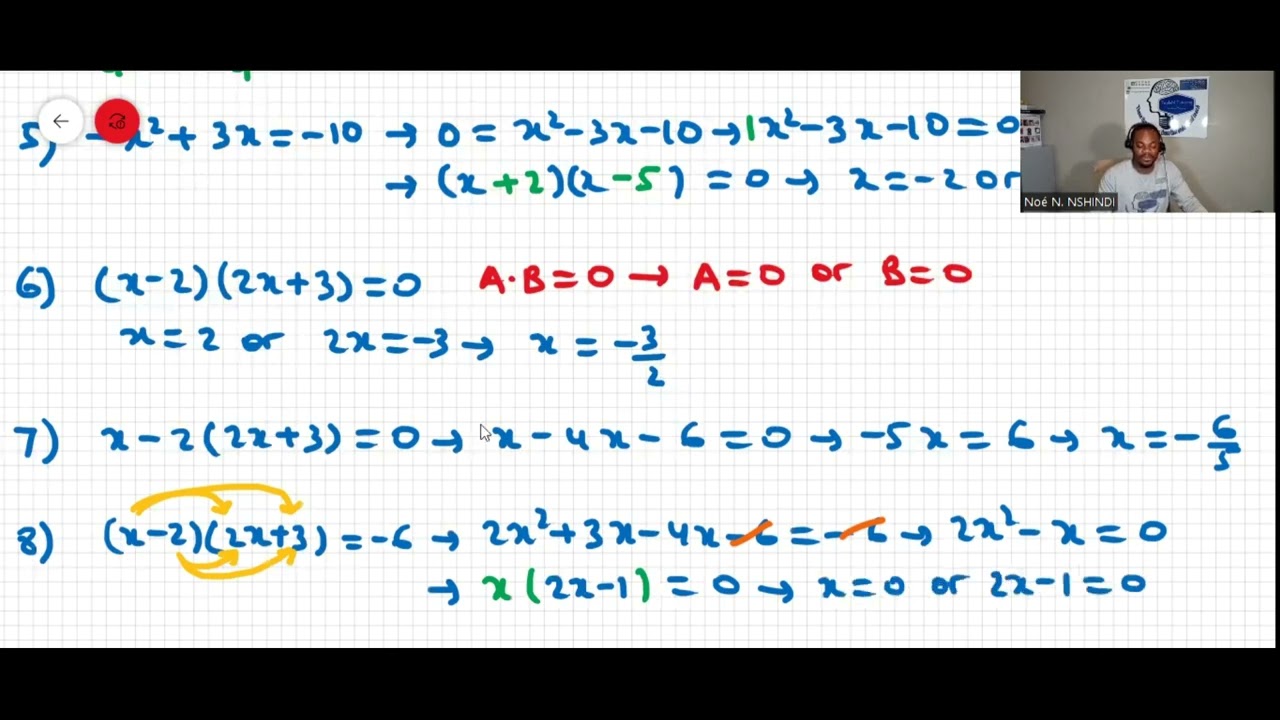 5) -x² + 3x = -10 → 0 = x² - 3x - 10 → 1x² - 3x - 10 = 0
→ (x + 2)(x - 5) = 0 → x = -2 or
Noé N. NSHINDI
6) (x - 2)(2x + 3) = 0 A·B = 0 → A = 0 or B = 0
x = 2 or 2x = -3 → x = -3/2
7) x - 2(2x + 3) = 0 → x - 4x - 6 = 0 → -5x = 6 → x = -6/5
8) (x - 2)(2x + 3) = -6 → 2x² + 3x - 4x - 6 = -6 → 2x² - x = 0
→ x(2x - 1) = 0 → x = 0 or 2x - 1 = 0